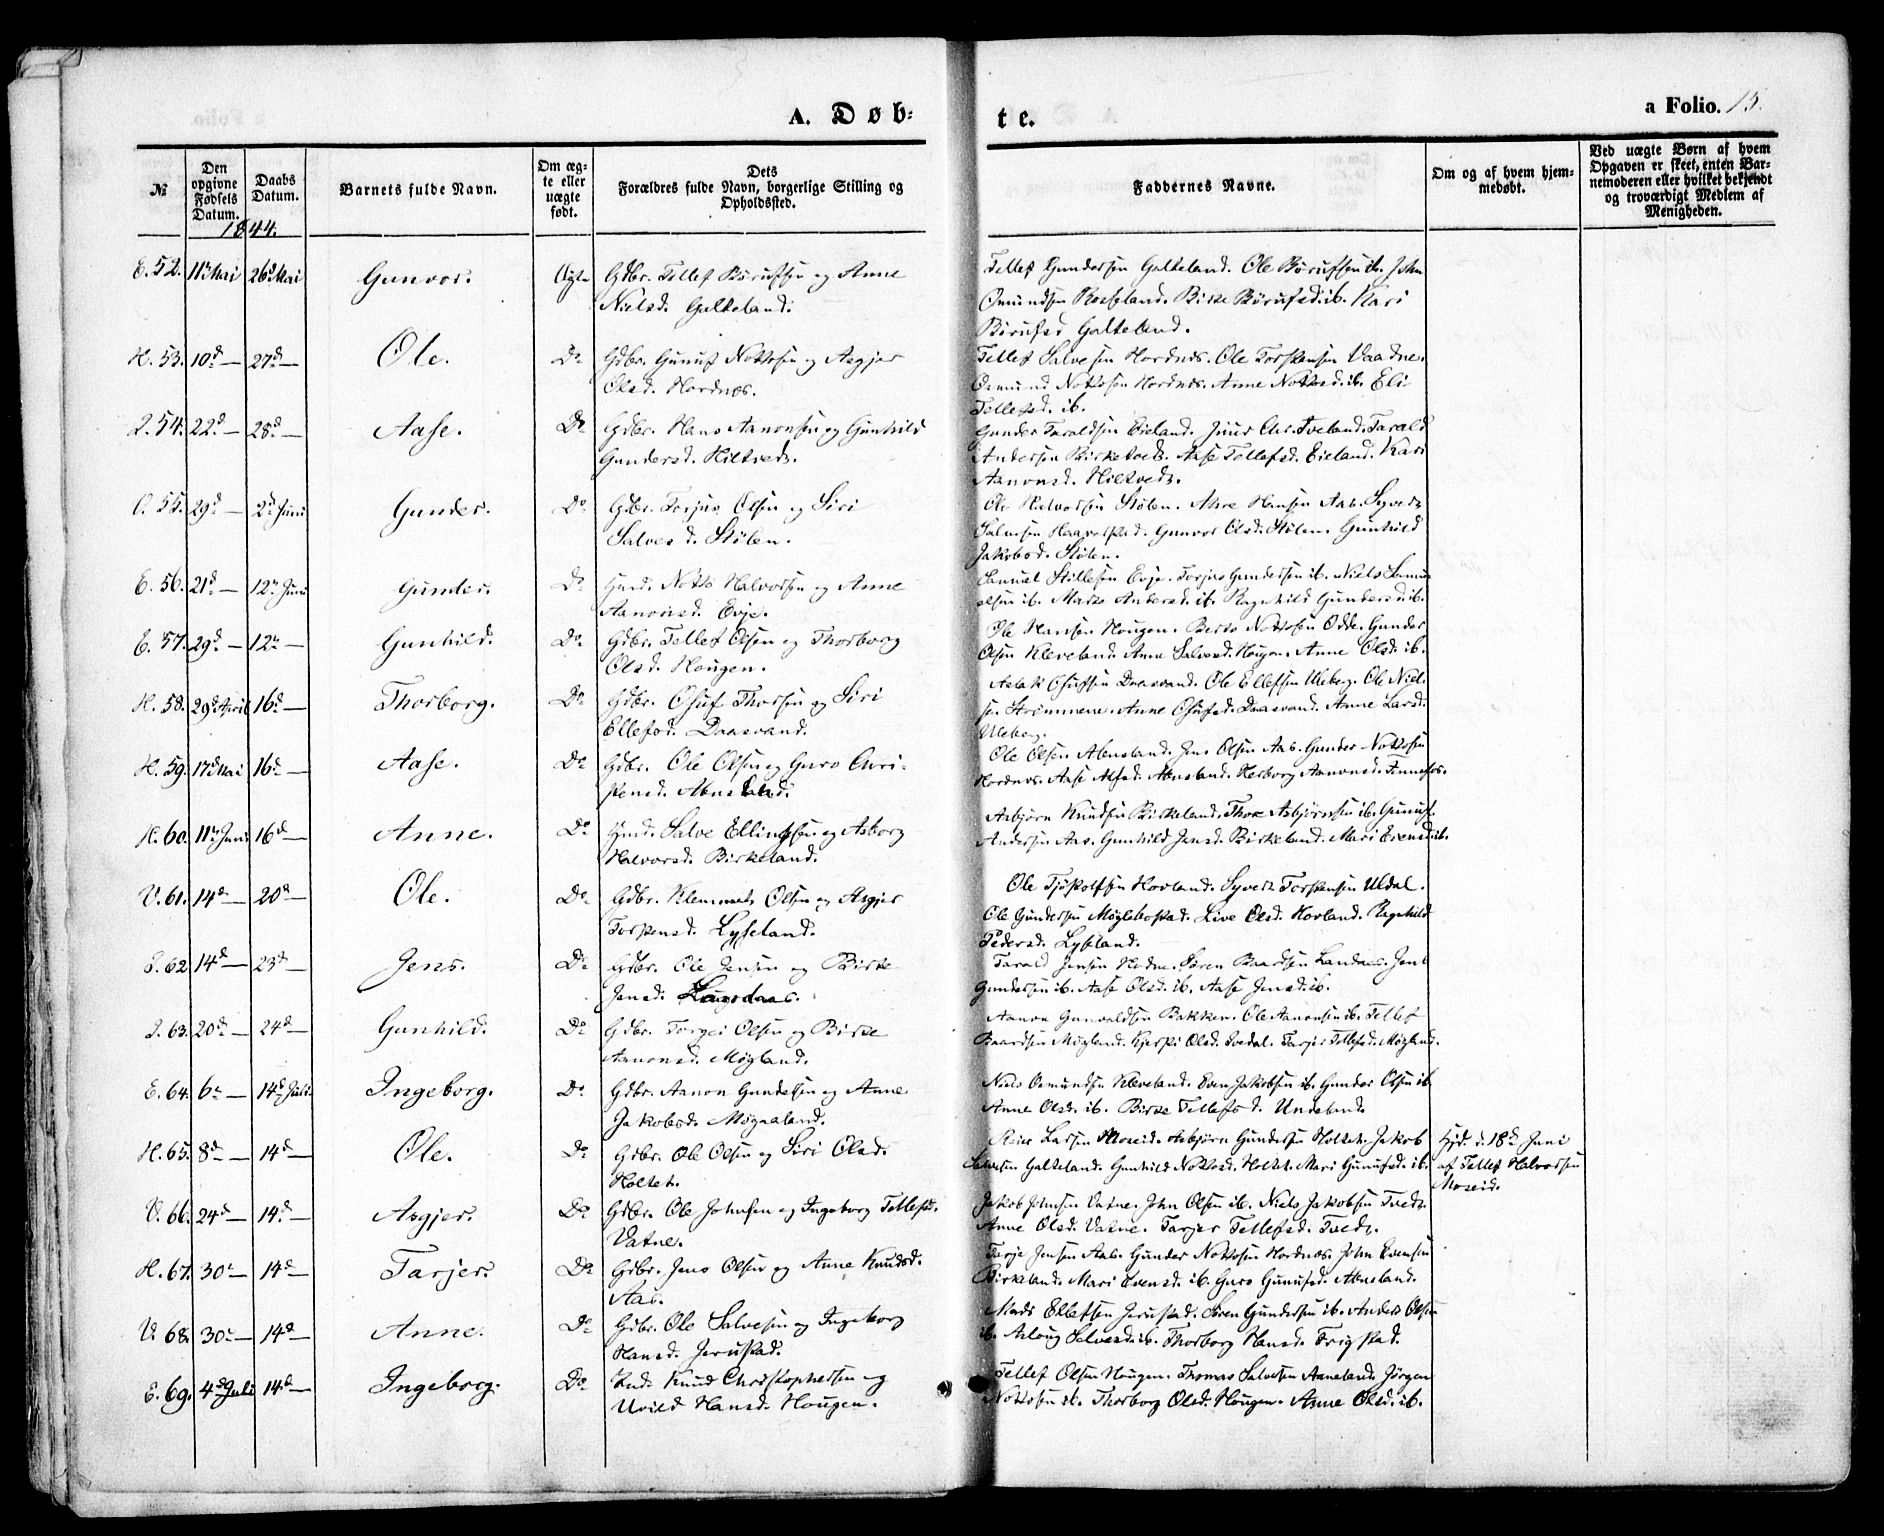 A. Døb=
te.
a Folio. 15.
№
Den opgivne Fødsels Datum.
Daabs Datum.
Barnets fulde Navn.
Om ægte eller uægte født.
Dets Forældres fulde Navn, borgerlige Stilling og Opholdssted.
Faddernes Navne.
Om og af hvem hjemmedøbt.
Ved uægte Børn af hvem Opgaven er skeet, enten Barnemoderen eller hvilket bekjendt og troværdigt Medlem af Menigheden.
1844.
E. 52. 11te Mai 26d Mai Gunvor. Ægte Gdbr. Tellef Børufsen og Anne
Nielsd. Galteland.
Tellef Gundersen Galteland. Ole Børufsen ib. John
Osmundsen Rosseland. Birte Børufsd. ib. Kari
Børufsd Galteland.
H. 53. 10d — 27d — Ole. Do Gdbr. Gunuf Nottosen og Asgjer
Olsd. Hordnes.
Tellef Salvesen Hordnes. Ole Torstensen Vaadne.
Osmund Nottosen Hordnes. Anne Nottosd. ib. Eli
Tellefsd. ib.
54. 22d — 28d — Aase. Do Gdbr. Hans Aanonsen og Gunhild
Gundersd. Hiltvedt.
Gunder Taraldsen Eieland. Tveland. Tarald
Andersen Birketvedt. Aase Tellefsd. Eieland. Kari
Aanonsd. Hiltvedt.
O. 55. 29d — 2d Juni Gunder. Do Gdbr. Torjus Olsen og Siri
Salvesd. Stølen.
Ole Halvorsen Stølen. Hansen Aas. Syvert
Salvesen Gunvor Olsd. Stølen. Gunhild
Jakobsd. Stølen.
E. 56. 21d — 12te Juni Gunder. Do Hmd. Notto Halvorsen og Anne
Aanonsd. Evje.
Samuel Stillesen Evje. Torjus Gundersen ib. Niels Samu-
elsen ib. Marte Andersd. ib. Ragnhild Gundersd. ib.
E. 57. 29d — 12te — Gunhild. Do Gdbr. Tellef Olsen og Thorborg
Olsd. Hougen.
Ole Hansen Hougen. Nottosen Odde. Gunder
Olsen Kleveland. Anne Salvesd. Hougen. Anne Olsd. ib.
H. 58. 29d April 16d — Thorborg. Do Gdbr. Osuf Thorsen og Siri
Ellefsd. Daasvand.
Aslak Osufsen Daasvand. Ole Ellefsen Uleberg. Ole Niel-
sen Strømmene. Anne Osufsd. Daasvand. Anne Larsd.
Uleberg.
H. 59. 17d Mai 16d — Aase. Do Gdbr. Ole Olsen og Guro Chri-
stensd. Abnesland.
Ole Olsen Abnesland. Jens Olsen Aas. Gunder Nottosen
Hordnes. Aase Abnesland. Herborg Aanonsd. Fennefos.
H. 60. 11te Juni 16d — Anne. Do Hmd. Salve Ellingsen og Asborg
Halvorsd. Birkeland.
Asbjørn Knudsen Birkeland. Thore Asbjørnsen ib. Gunuf
Andersen Aas. Gunhild Jensd. Birkeland. Mari Evensd. ib.
V. 61. 14d — 20d — Ole. Do Gdbr. Klemmet Olsen og Asgjer
Torstensd. Lyseland.
Ole Tjøstolfsen Hovland. Syvert Torstensen Uldal.
Ole Gundersen Møglebostad. Live Olsd. Hovland. Ragnhild
Pedersd. Lyseland.
62 14d — 23d — Jens. Do Gdbr. Ole Jensen og Birte
Jensd.
Tarald Jensen Hodne. Søren Baardsen Landaas. Jens
Gundersen ib. Aase Olsd. ib. Aase Jensd. ib.
63. 20d — 24d — Gunhild. Do Gdbr. Torgei Olsen og Birte
Aanonsd. Møgland.
Aanon Gunvaldsen Bakken. Ole Aanonsen ib. Tellef
Baardsen Møgland. Kjersti Olsd. Ivedal. Tarjer Tellefsd. Møgland.
E. 64. 6te — 14d Juli Ingeborg. Do Gdbr. Aanon Gundersen og Anne
Jakobsd. Møgaaland.
Niels Osmundsen Kleveland. Even Jakobsen ib. Gunder Olsen ib.
Anne Olsd. ib. Birte Tellefsd. Undeland.
H. 65. 8d — 14d — Ole. Do Gdbr. Ole Olsen og Siri Olsd.
Holtet.
Reier Larsen Moseid. Asbjørn Gundersen Holtet. Jakob
Salvesen Galteland. Gunhild Nottosd. Holtet. Mari Gunufsd. ib.
Hjd. d. 18de Juni
af Tellef Halvorsen
Moseid.
V. 66. 24d — 14d — Asgjer. Do Gdbr. Ole Johnsen og Ingeborg Tellefsd.
Vatne.
Jakob Johnsen Vatne. John Olsen ib. Niels Jakobsen Tvedt.
Anne Olsd. Vatne. Tarjer Tellefsd. Tvedt.
H. 67. 30te — 14d — Tarjer. Do Gdbr. Jens Olsen og Anne Knudsd.
Aas.
Tarje Jensen Aas. Gunder Nottosen Hordnes. John Evensen
Birkeland. Mari Evensd. ib. Guro Gunufsd. Abnesland.
V. 68. 30te — 14d — Anne. Do Gdbr. Ole Salvesen og Ingeborg
Hansd. Jerustad.
Mads Ellefsen Jerustad. Søren Gundersen ib. Anders Olsen
ib. Asloug Salvesd. ib. Thorborg Hansd. Frigstad.
E. 69. 4d Juli 14d — Ingeborg. Do Knud Christophersen og
Uvild Hansd. Hougen.
Tellef Olsen Hougen. Thomas Salvesen Aaneland. Jørgen
Nottosen ib. Thorborg Olsd. Hougen. Anne Olsd. ib.